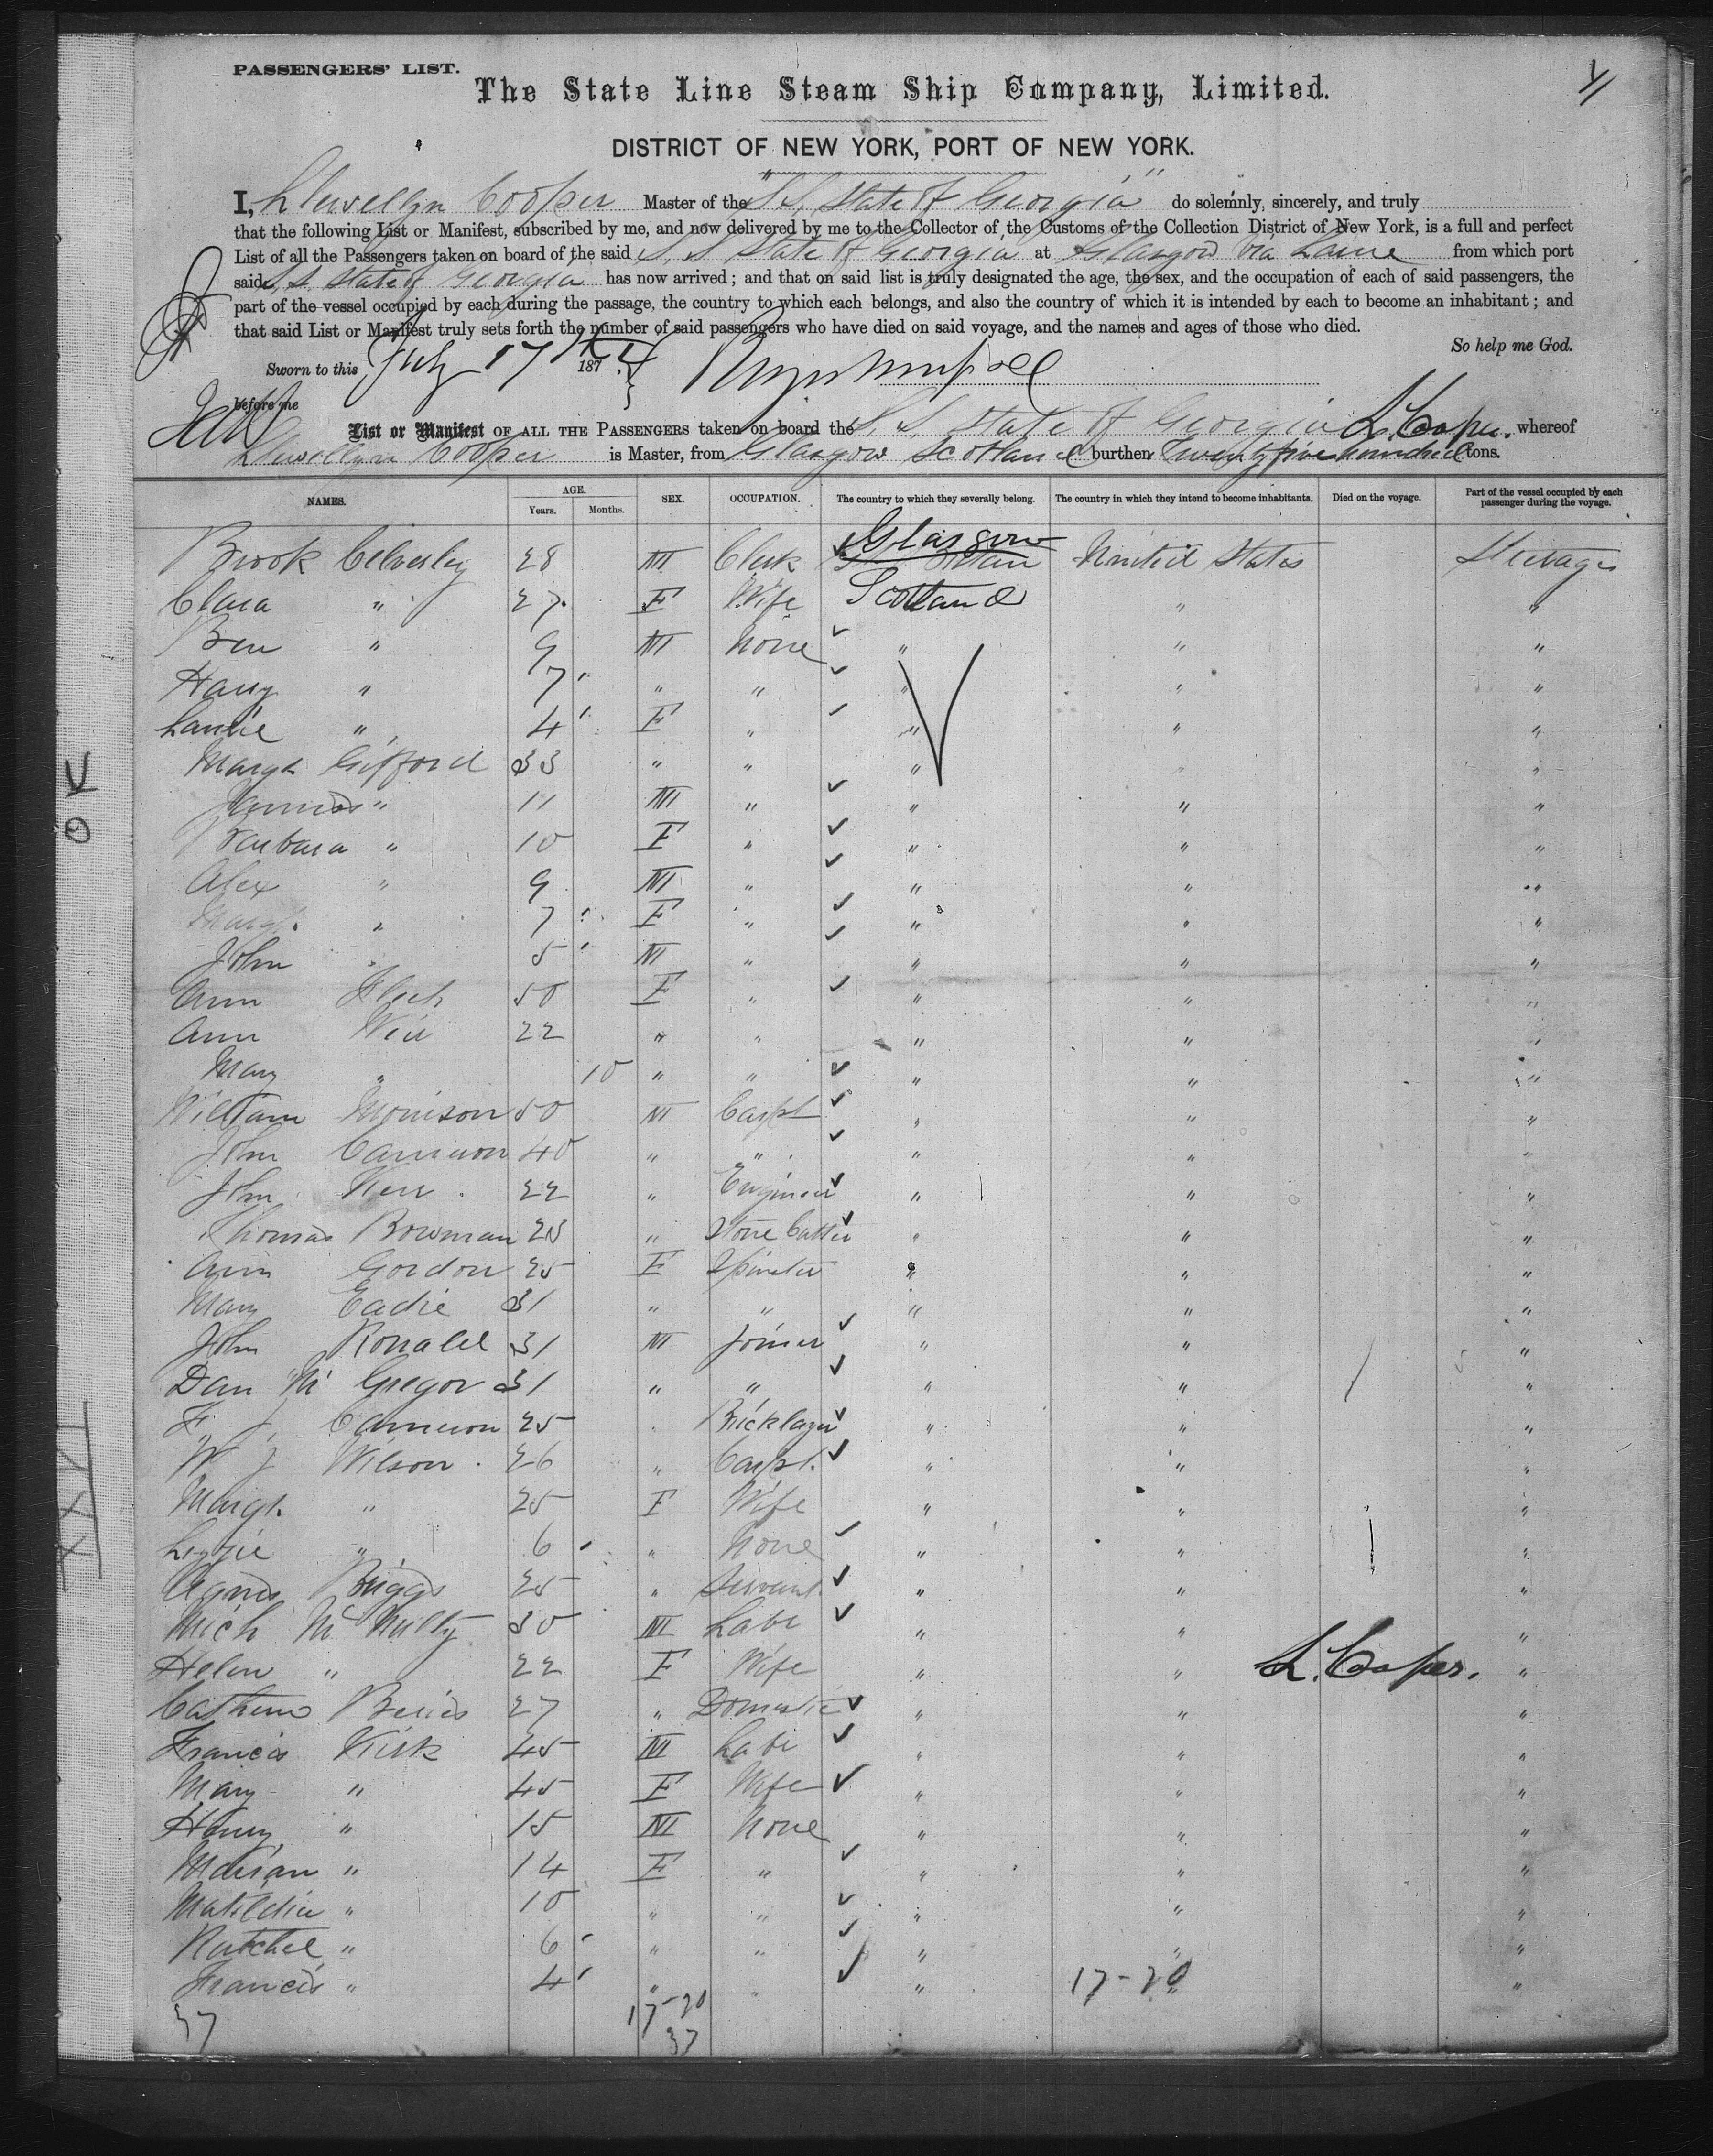 PASSENGERS' LIST.
The State Line Steam Ship Company, Limited.
DISTRICT OF NEW YORK, PORT OF NEW YORK.
I, Llewellyn Cooper Master of the "S.S. State of Georgia" do solemnly, sincerely, and truly
that the following List or Manifest, subscribed by me, and now delivered by me to the Collector of the Customs of the Collection District of New York, is a full and perfect
List of all the Passengers taken on board of the said S. S. State of Georgia at Glasgow via Larne from which port
said S.S. State of Georgia has now arrived; and that on said list is truly designated the age, the sex, and the occupation of each of said passengers, the
part of the vessel occupied by each during the passage, the country to which each belongs, and also the country of which it is intended by each to become an inhabitant; and
that said List or Manifest truly sets forth the number of said passengers who have died on said voyage, and the names and ages of those who died.
So help me God.
Sworn to this July 17th 187
before me
List or Manifest OF ALL THE PASSENGERS taken on board the S. S. State of Georgia L. Cooper. whereof
Llewellyn Cooper is Master, from Glasgow Scotland burthen Twenty five hundred tons.
NAMES. AGE. Years. Months. SEX. OCCUPATION. The country to which they severally belong. The country in which they intend to become inhabitants. Died on the voyage. Part of the vessel occupied by each passenger during the voyage.
Glasgow
Brook 28 M Clerk United States Steerage
Clara " 27 F Wife Scotland " "
Ben " 9 M None " " "
Harry " 7 " " " " "
" 4 F " " " "
Margt Gifford 33 " " " " "
James " 11 M " " " "
Barbara " 10 F " " " "
Alex " 9 M " " " "
Margt. " 7 F " " " "
John " 5 M " " " "
Ann 50 F " " " "
Ann Weir 22 " " " " "
Mary " 10 " " " " "
William Morrison 50 M Carpt " " "
John Cameron 40 " " " " "
John Kerr 22 " Engineer " " "
Thomas Bowman 23 " Stone Cutter " " "
Ann Gordon 25 F Spinster " " "
Mary Eadie 31 " " " " "
John Ronald 31 M Joiner " " "
Dan Mc Gregor 31 " " " " "
F. J. Cameron 25 " Bricklayer " " "
W J Wilson 26 " Carpt. " " "
Margt. " 25 F Wife " " "
Lizzie " 6 " None " " "
Agnes Briggs 25 " Servant " " "
Mich Mc Nulty 30 M Labr " " "
Helen " 22 F Wife " " L. Cooper. "
27 " Domestic " " "
Francis Kirk 45 M Labr " " "
Mary " 45 F Wife " " "
Henry " 15 M None " " "
Marian " 14 F " " " "
Matilda " 10 " " " " "
Ratchel " 6 " " " " "
Francis " 4 " " " 17-20 "
37 17-20
37
OK
XXVI